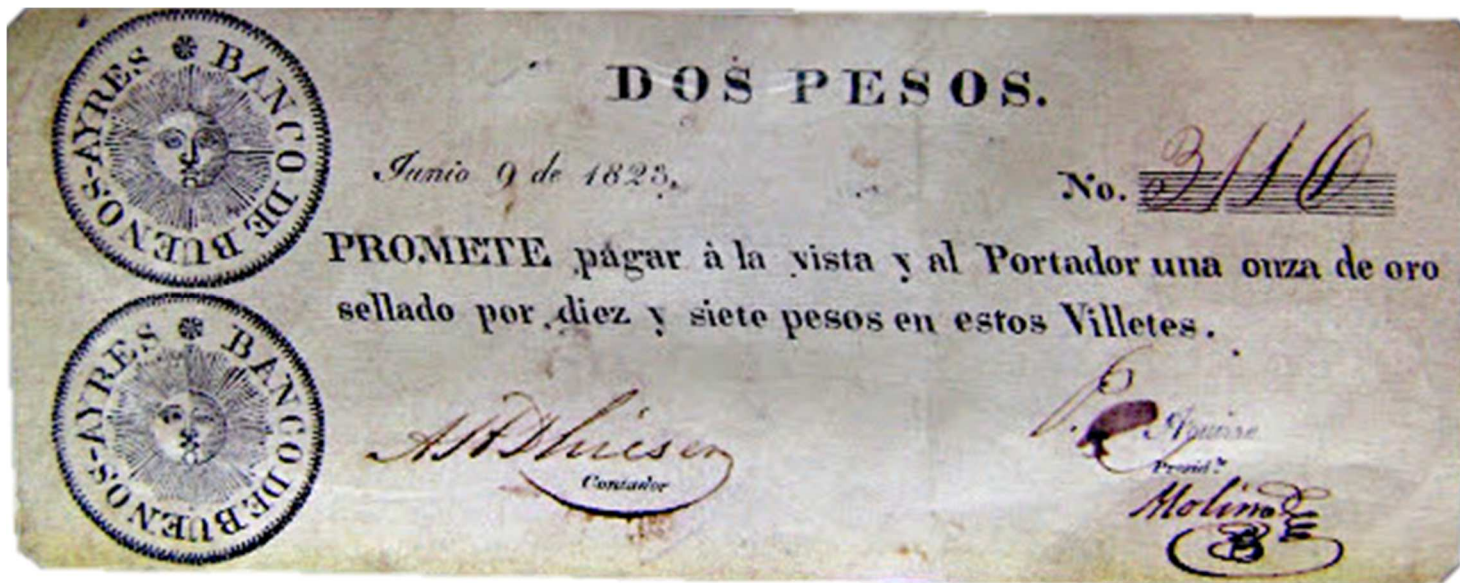 BANCO DE BUENOS-AYRES
BANCO DE BUENOS-AYRES
DOS PESOS.
Junio 9 de 1823.
No. 3116
PROMETE pagar à la vista y al Portador una onza de oro
sellado por diez y siete pesos en estos Villetes.
Contador
P. Aguirre
Presid.te
Molina